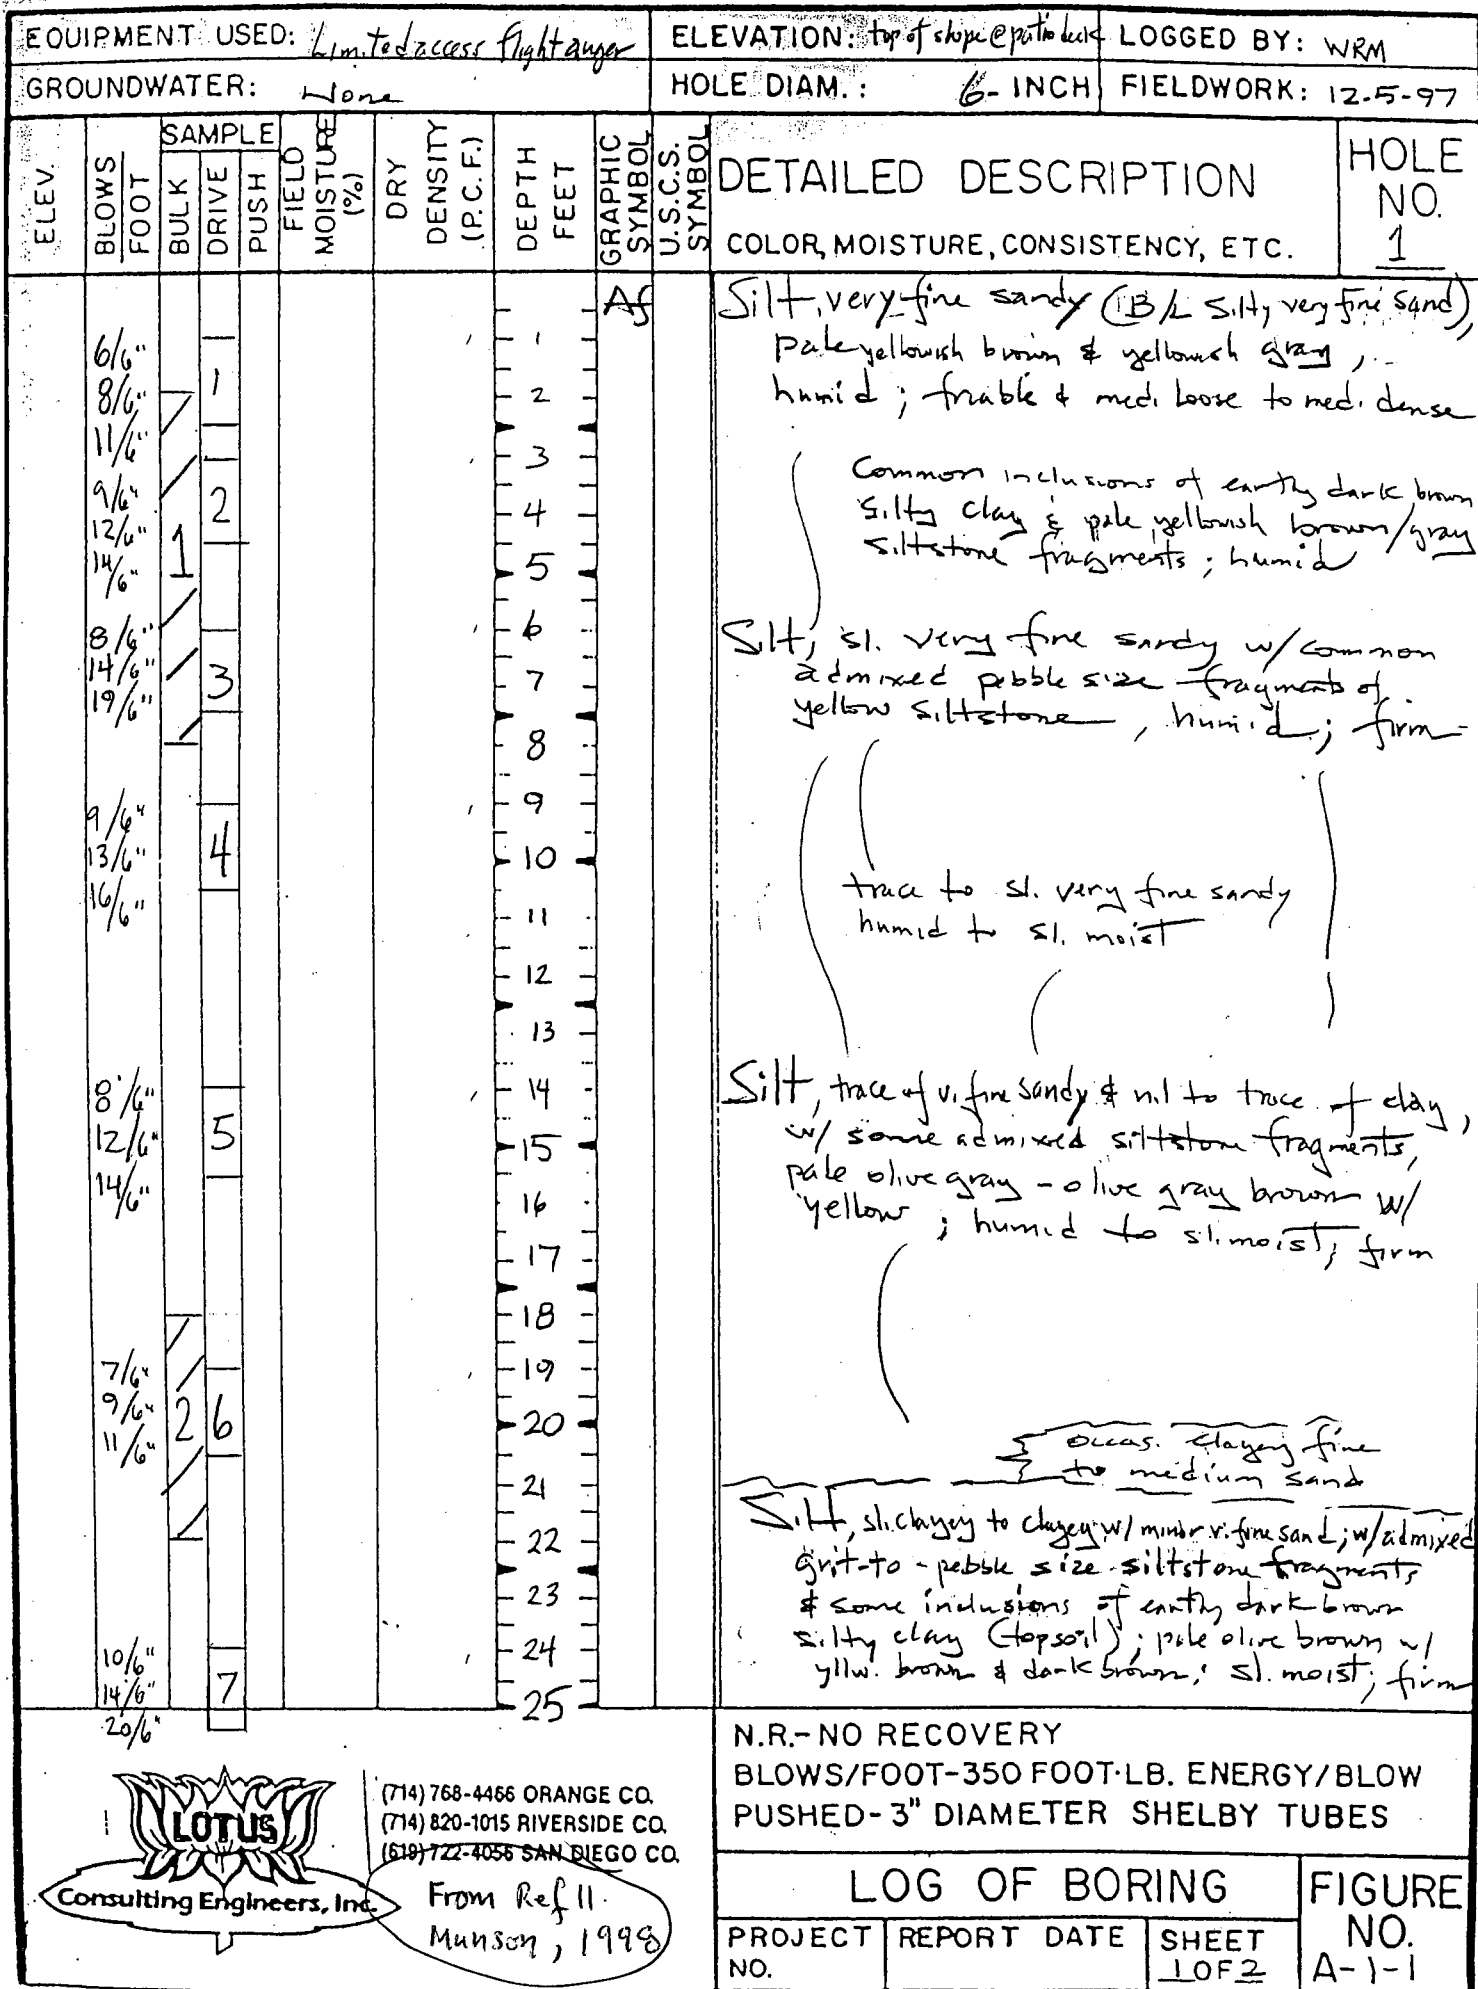 EQUIPMENT USED: Limited access flight auger
ELEVATION: top of slope @ patio deck
LOGGED BY: WRM
GROUNDWATER: None
HOLE DIAM.: 6-INCH
FIELDWORK: 12-5-97
ELEV.
BLOWS
FOOT
SAMPLE
BULK
DRIVE
PUSH
FIELD
MOISTURE
(%)
DRY
DENSITY
(P.C.F.)
DEPTH
FEET
GRAPHIC
SYMBOL
U.S.C.S.
SYMBOL
DETAILED DESCRIPTION
COLOR, MOISTURE, CONSISTENCY, ETC.
HOLE
NO.
1
Af
Silt, very fine sandy (B/L Silty very fine sand),
pale yellowish brown & yellowish gray,
humid; friable & med. loose to med. dense
Common inclusions of earthy dark brown
silty clay & pale yellowish brown/gray
siltstone fragments; humid
Silt, sl. very fine sandy w/ common
admixed pebble size fragments of
yellow siltstone, humid; firm
trace to sl. very fine sandy
humid to sl. moist
Silt, trace of v. fine sandy & nil to trace of clay,
w/ some admixed siltstone fragments,
pale olive gray - olive gray brown w/
yellow; humid to sl. moist; firm
occas. clayey fine
to medium sand
Silt, sl. clayey to clayey w/ minor v. fine sand; w/ admixed
grit-to-pebble size siltstone fragments
& some inclusions of earthy dark brown
silty clay (topsoil); pale olive brown w/
yllw. brown & dark brown; sl. moist; firm
6/6"
8/6"
11/6"
9/6"
12/6"
14/6"
8/6"
14/6"
19/6"
9/6"
13/6"
16/6"
8/6"
12/6"
14/6"
7/6"
9/6"
11/6"
10/6"
14/6"
20/6"
1
2
1
2
3
4
5
6
7
1
2
3
4
5
6
7
8
9
10
11
12
13
14
15
16
17
18
19
20
21
22
23
24
25
LOTUS
Consulting Engineers, Inc.
(714) 768-4466 ORANGE CO.
(714) 820-1015 RIVERSIDE CO.
(619) 722-4056 SAN DIEGO CO.
From Ref 11
Munson, 1998
N.R.-NO RECOVERY
BLOWS/FOOT-350 FOOT·LB. ENERGY/BLOW
PUSHED-3" DIAMETER SHELBY TUBES
LOG OF BORING
FIGURE
NO.
A-1-1
PROJECT
NO.
REPORT DATE
SHEET
1 OF 2